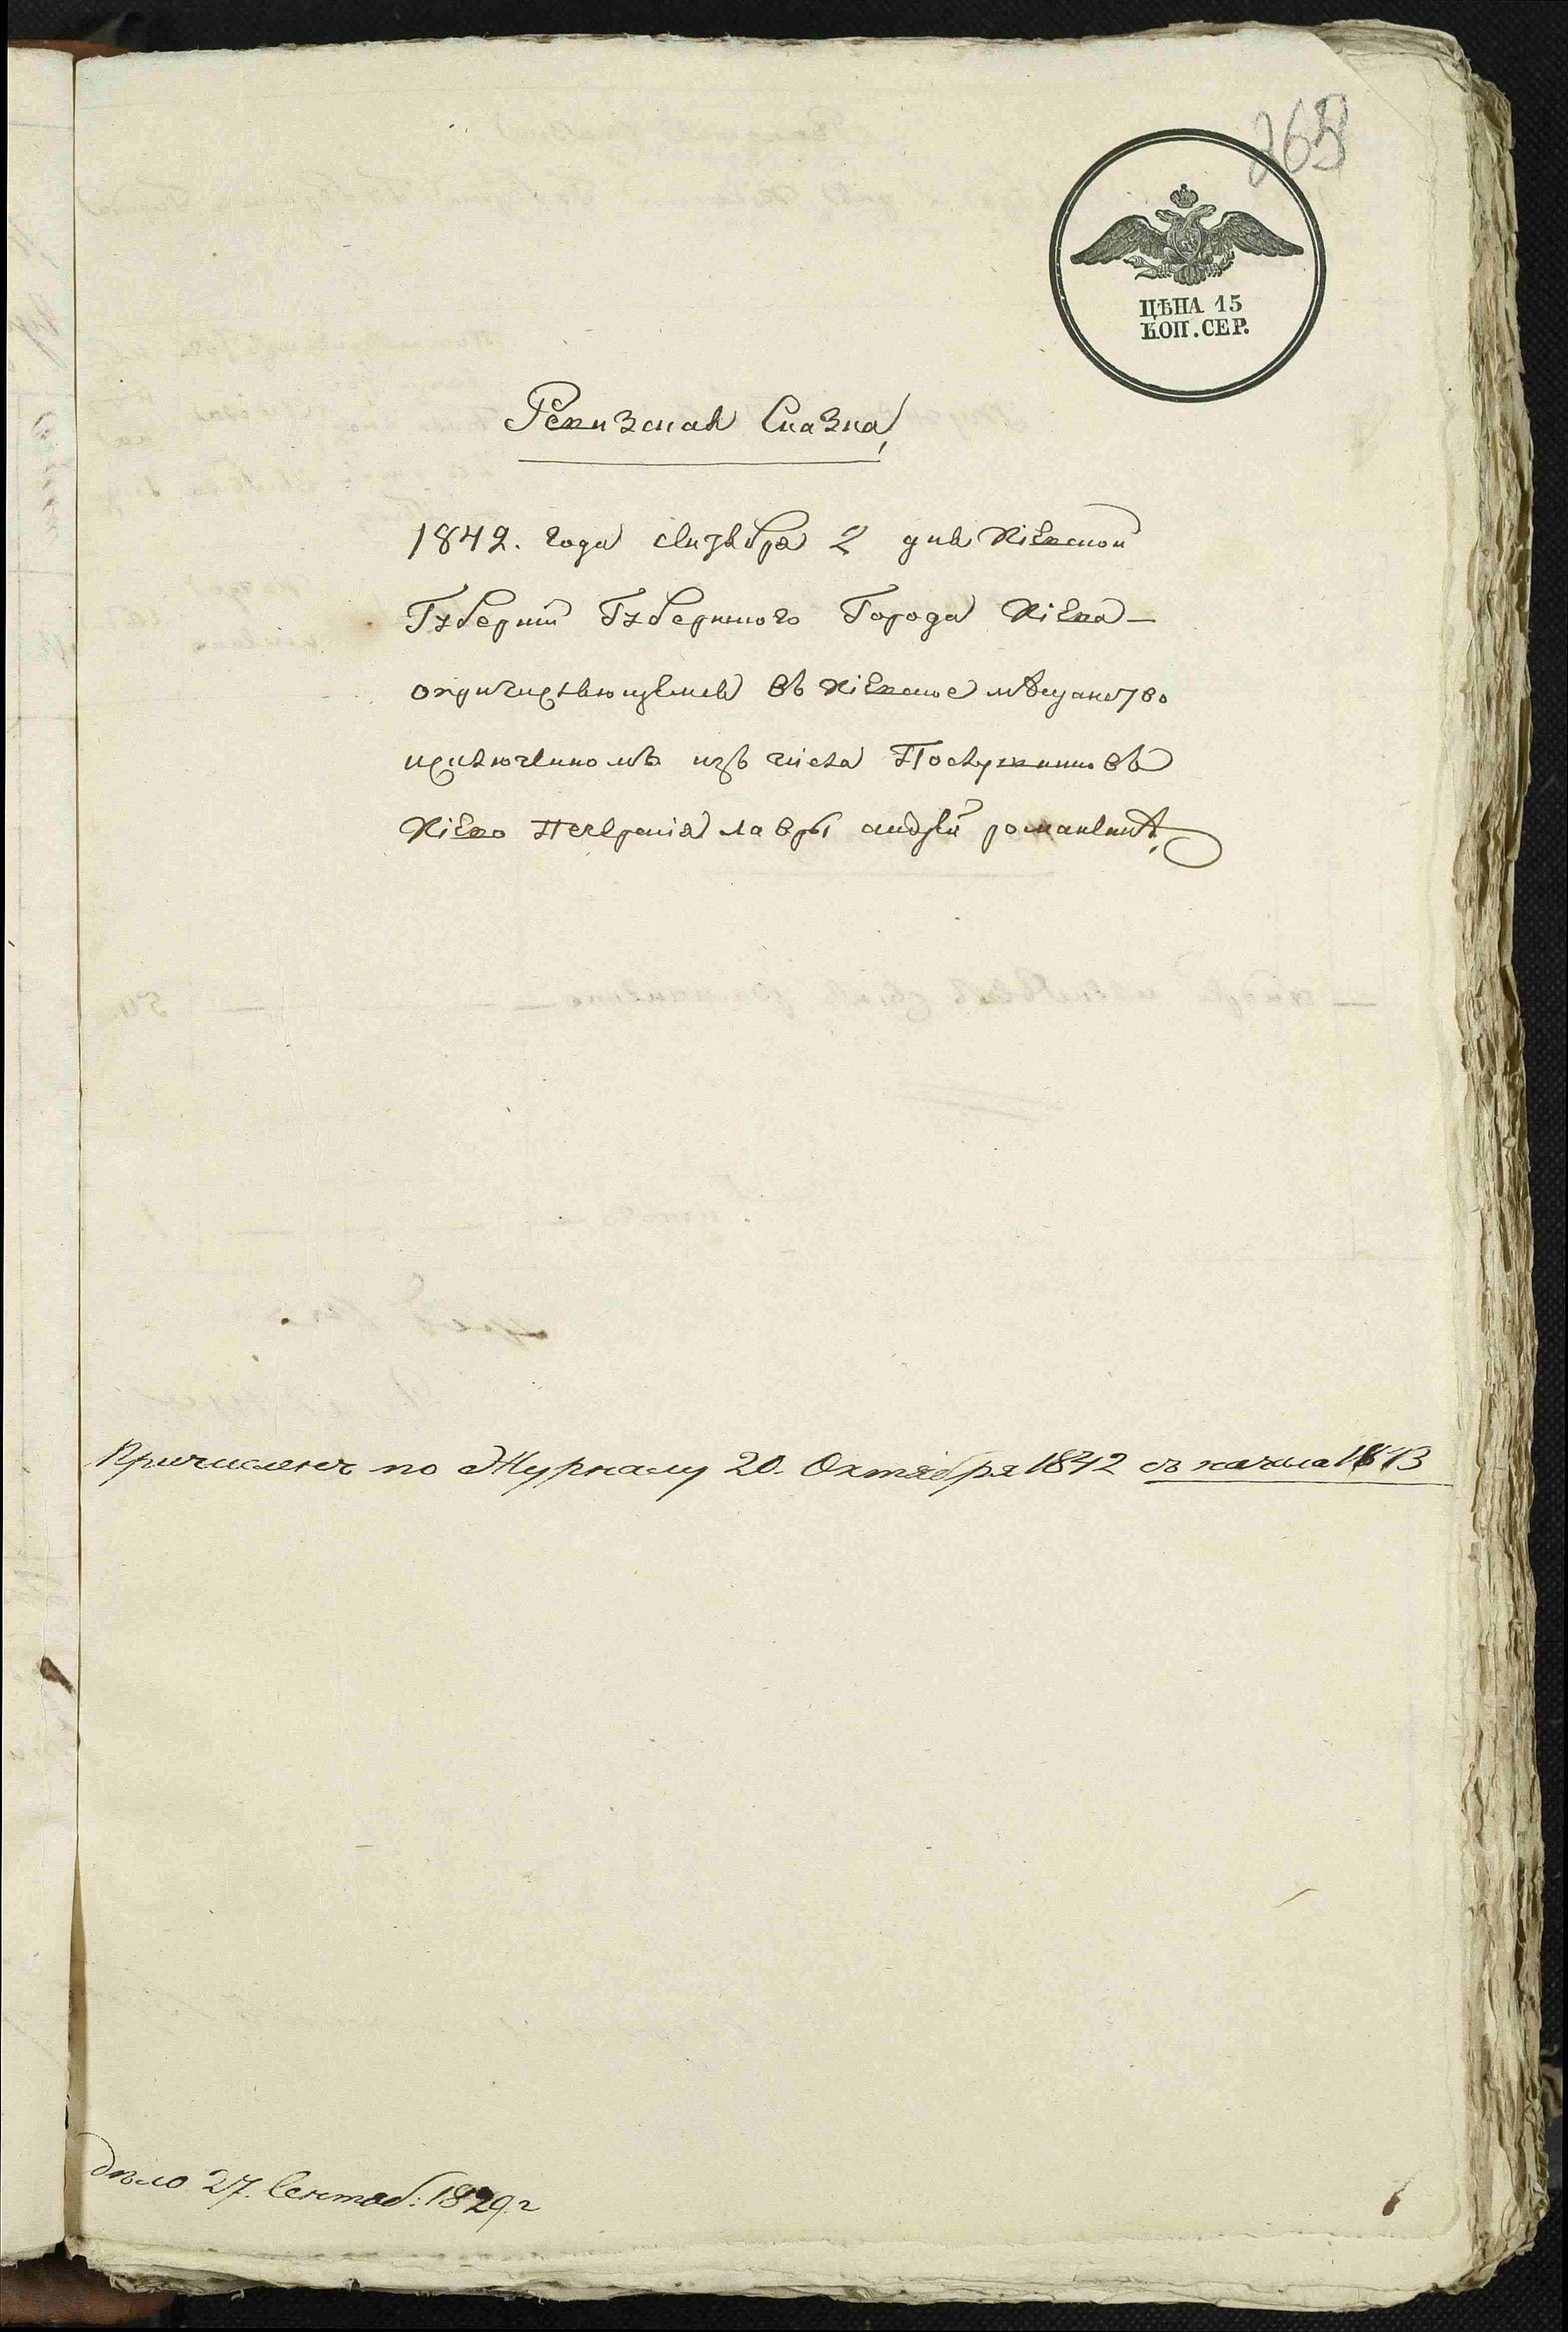 265
ЦѢНА 15
КОП. СЕР.
Ревизская Сказка,
1842. года октября 2 дня Кіевской
Губерніи Губернского Города Кіева
о причисляющемся въ Кіевское мѣщанство
исключеномъ изъ числа Послушниковъ
Кіево Печерскія лавры андрей романенкѣ
Причисленъ по Журналу 20. Октября 1842 съ начала 1843
дѣло 27. Сентяб: 1829. г